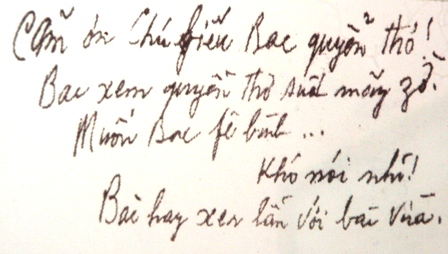 Cảm ơn Chú biếu Bác quyển thơ!
Bác xem quyển thơ suốt mấy zờ.
Muốn Bác fê bình ...
Khó nói nhỉ!
Bài hay xen lẫn với bài vừa.